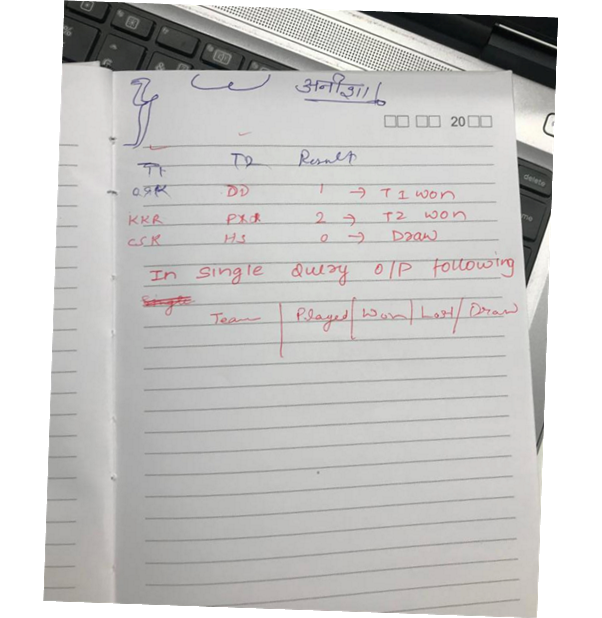 अनीशा
20
T1 T2 Result
CSK DD 1 → T1 won
KKR 2 → T2 won
CSK HS 0 → Draw
In single Query O/P following
Team Played Won Lost Draw
delete